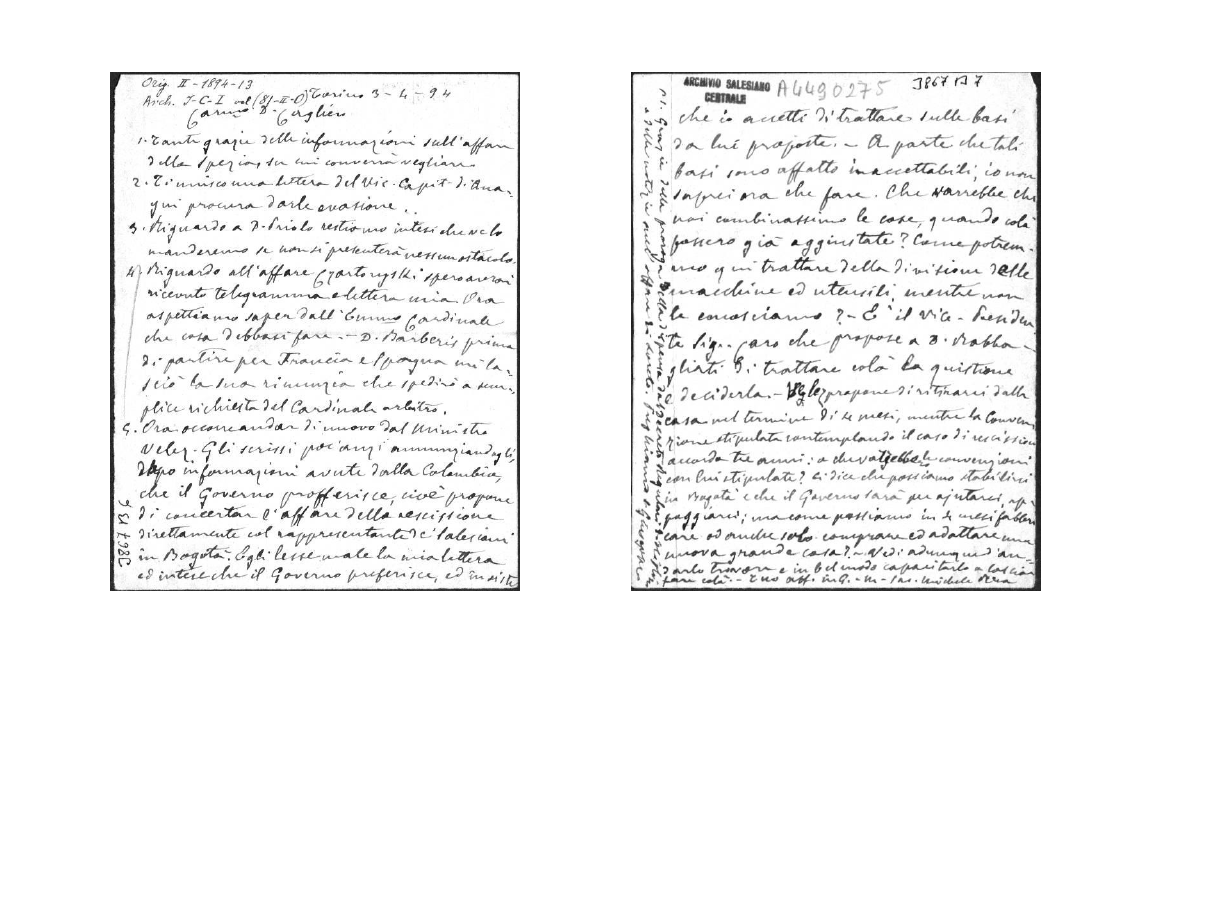 Orig. II - 1894-13
Arch. J-C-I vol (8)-II-O) Torino 3-4-94
Carmo D. Cagliero
1. Tante grazie delle informazioni sull'affare
della Spezia, su cui converrà vegliare
2. Ti unisco una lettera del Vic. Capit. di Ana-
gni procura darle evasione.
3. Riguardo a D. Priolo restiamo intesi che ve lo
manderemo se non si presenterà nessun ostacolo.
4) Riguardo all'affare Czartoryski spero avrai
ricevuto telegramma e lettera mia. Ora
aspettiamo saper dall'Emmo Cardinale
che cosa debbasi fare. - D. Barberis prima
di partire per Francia e Spagna mi la-
sciò la sua rinunzia che spedirò a sem-
plice richiesta del Cardinale arbitro.
5. Ora occorre andar di nuovo dal Ministro
Velez. Gli scrissi poc'anzi annunziandogli,
dopo informazioni avute dalla Colombia,
che il Governo profferisce, cioè propone
di concertar l'affare della rescissione
direttamente col rappresentante de' Salesiani
in Bogotà. Egli lesse male la mia lettera
ed intese che il Governo preferisce, ed insiste
3867 B 6
ARCHIVIO SALESIANO
CENTRALE
A4490275
3867 B 7
che io accetti di trattare sulle basi
da lui proposte. - A parte che tali
basi sono affatto inaccettabili, io non
saprei ora che fare. Che varrebbe che
noi combinassimo le cose, quando colà
fossero già aggiustate? Come potrem-
mo qui trattare della divisione delle
macchine ed utensili, mentre non
le conosciamo? - È il Vice-Presiden
te Sig. Caro che propose a D. Rabba-
gliati di trattare colà la quistione
e deciderla. - Velez propone di ritirarci dalla
casa nel termine di 4 mesi, mentre la Conven
zione stipulata contemplando il caso di rescissione
accorda tre anni: a che varrebbe le convenzioni
con lui stipulate? Ci dice che possiamo stabilirci
in Bogotà e che il Governo sarà per ajutarci, ap
poggiarci; ma come possiamo in 4 mesi fabbri
care od anche solo comprare ed adattare una
nuova grande casa? - Vedi adunque d'an-
darlo trovare e in bel modo capacitarlo a lasciar
fare colà. - Tuo aff. in G. e M. Sac. Michele Rua
P.S. Grazie della proroga della dispensa
e delle notizie sull'affare di